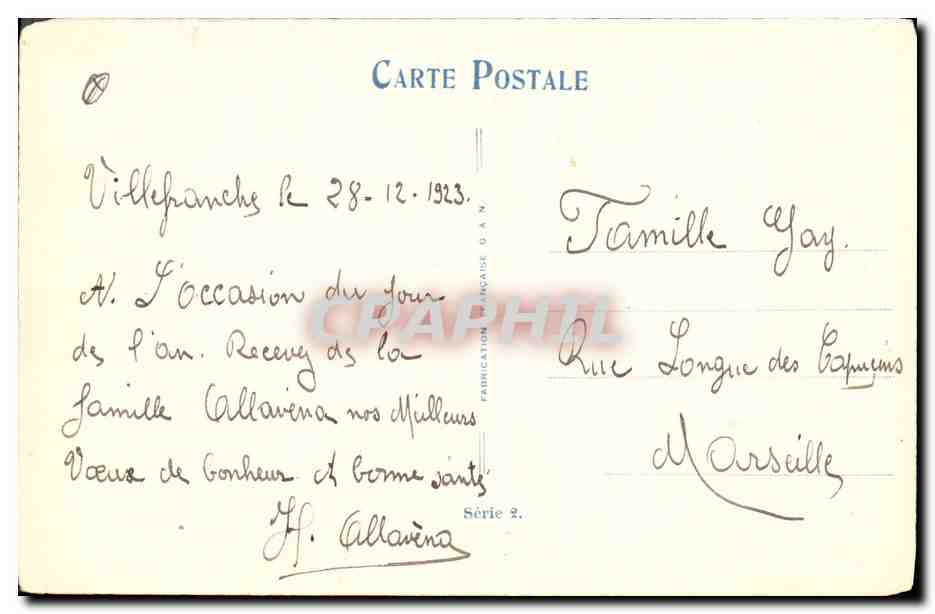 CARTE POSTALE
Villefranche le 28-12-1923.
A. L'occasion du jour
de l'an. Recevez de la
famille Allavéna nos Meilleurs
Vœux de bonheur et bonne santé
H. Allavéna
FABRICATION FRANÇAISE GAN
Série 2.
Famille Gay.
Rue Longue des Capucins
Marseille
CPAPHIL